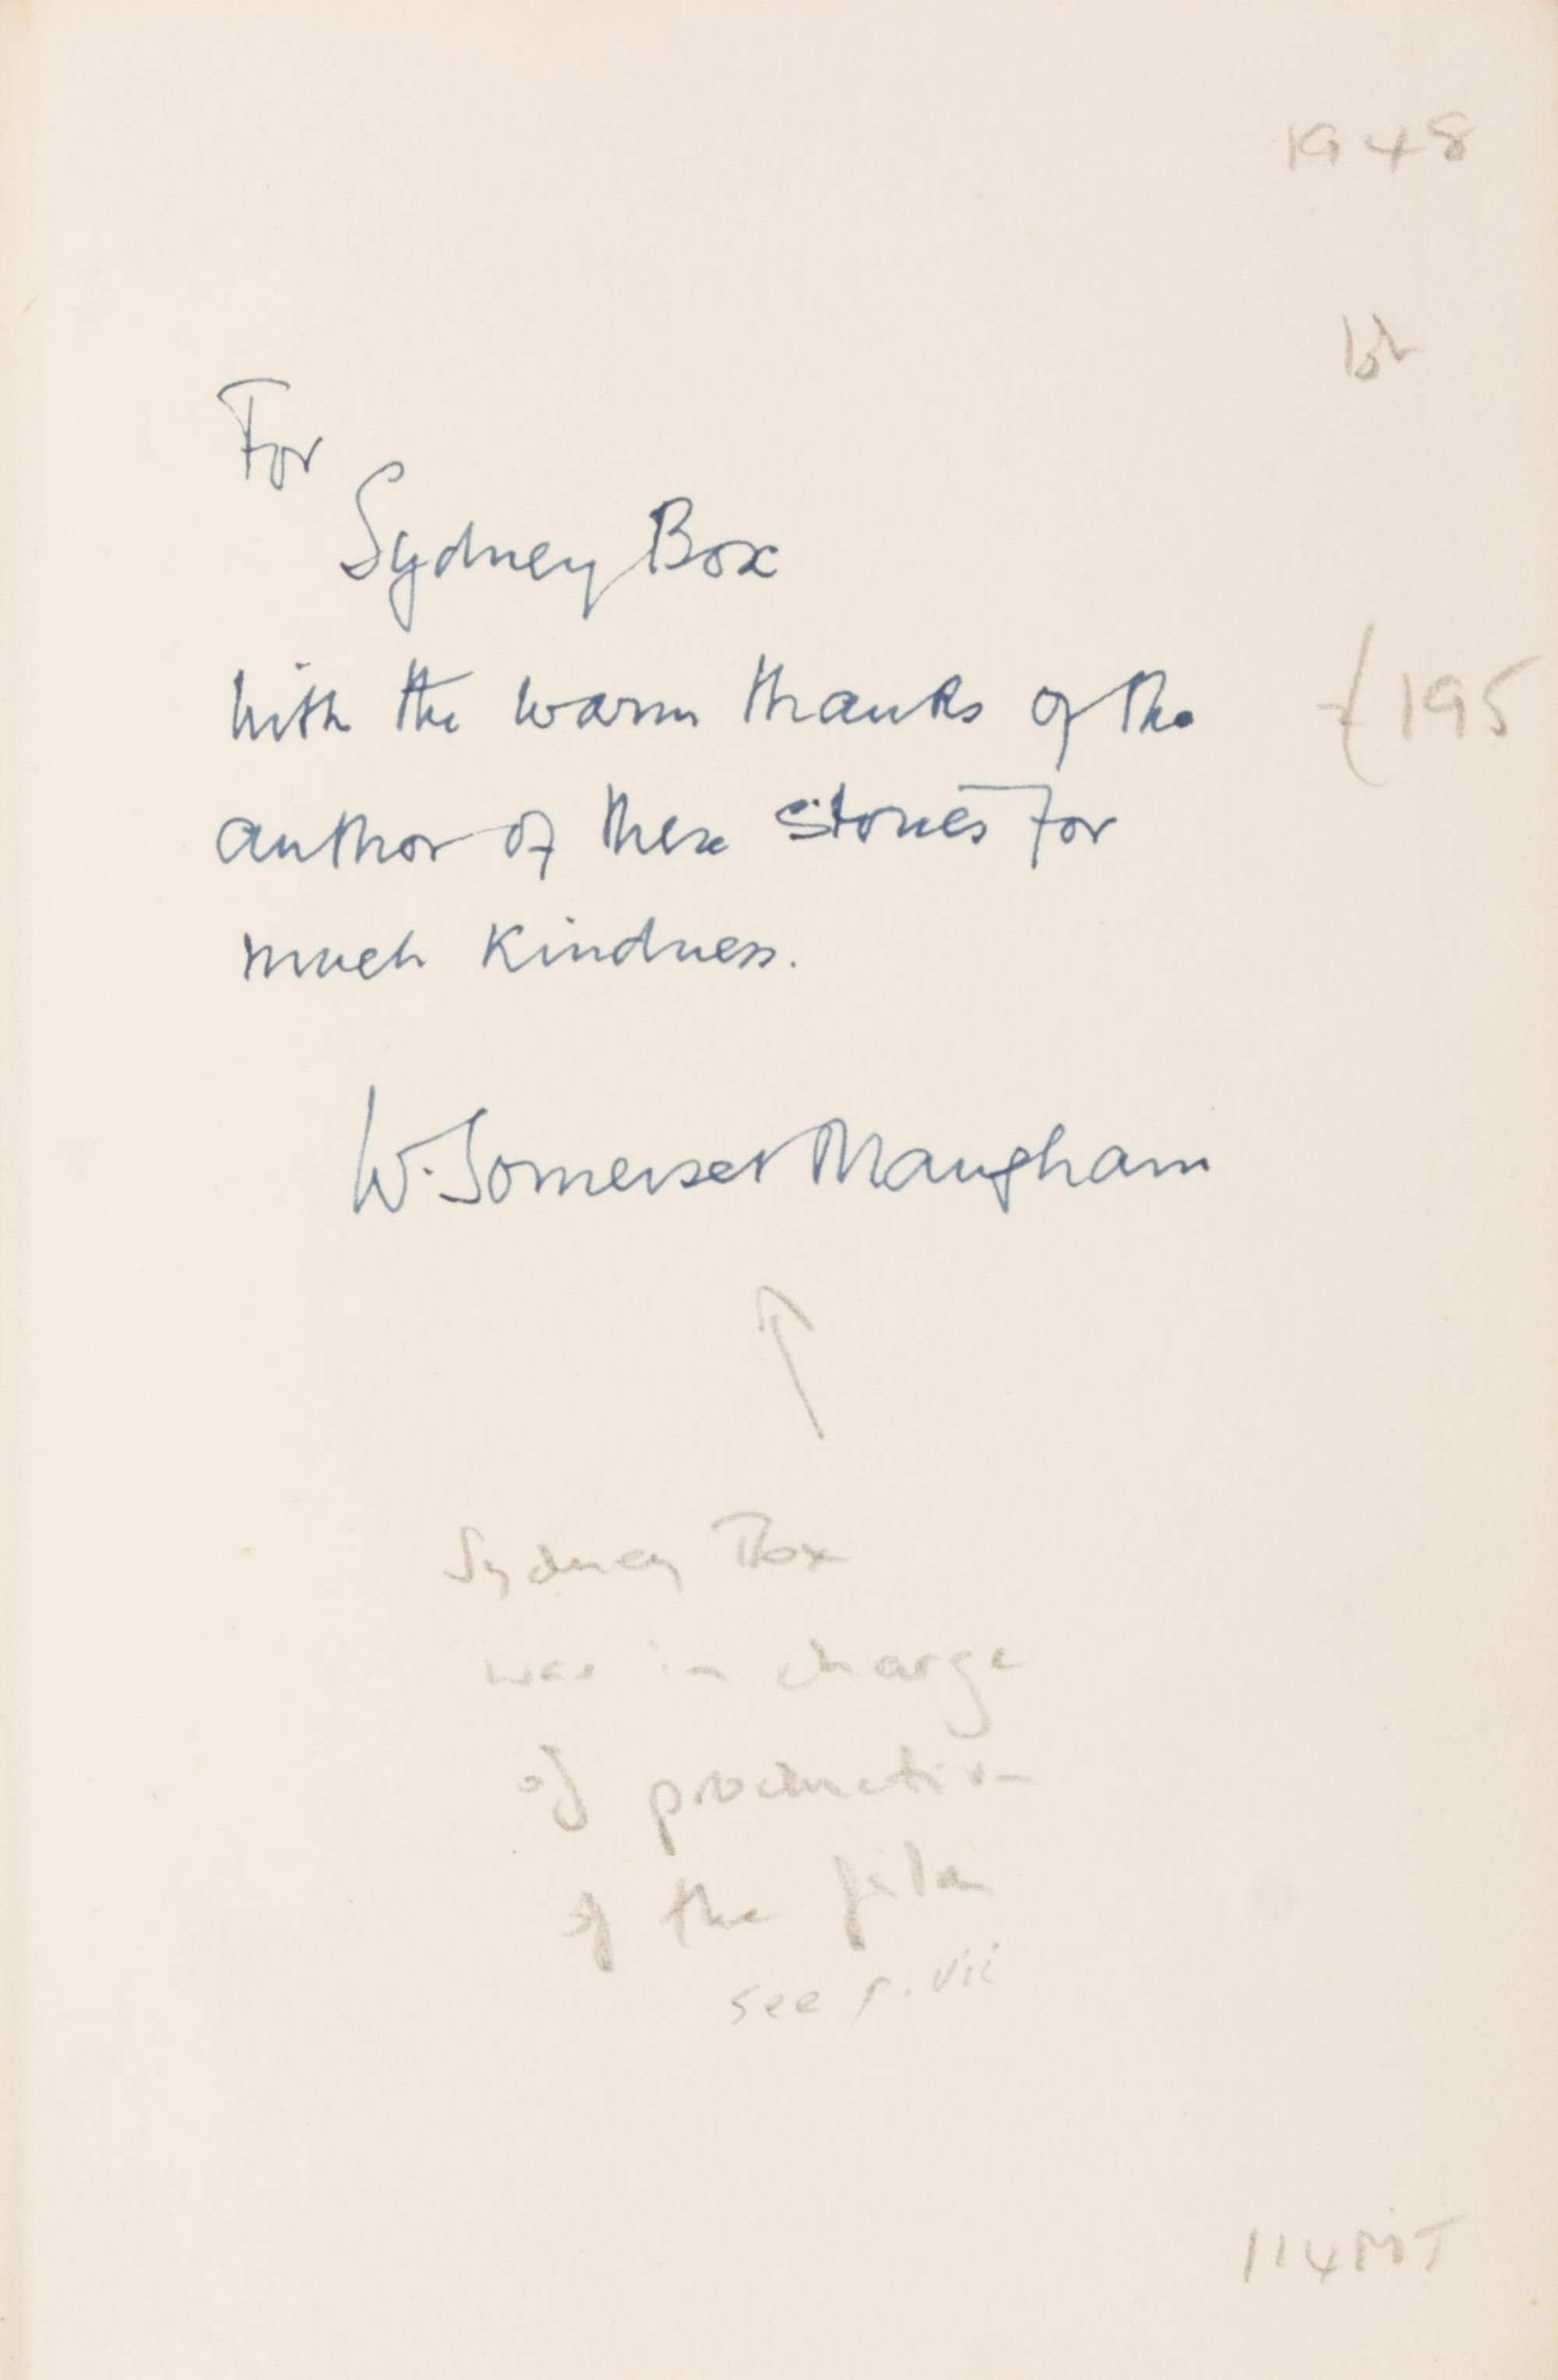 1948
1st
For
Sydney Box
with the warm thanks of the
£195
author of these stories for
much kindness.
W. Somerset Maugham
Sydney Box
was in charge
of production
of the film
see p. vii
114MT